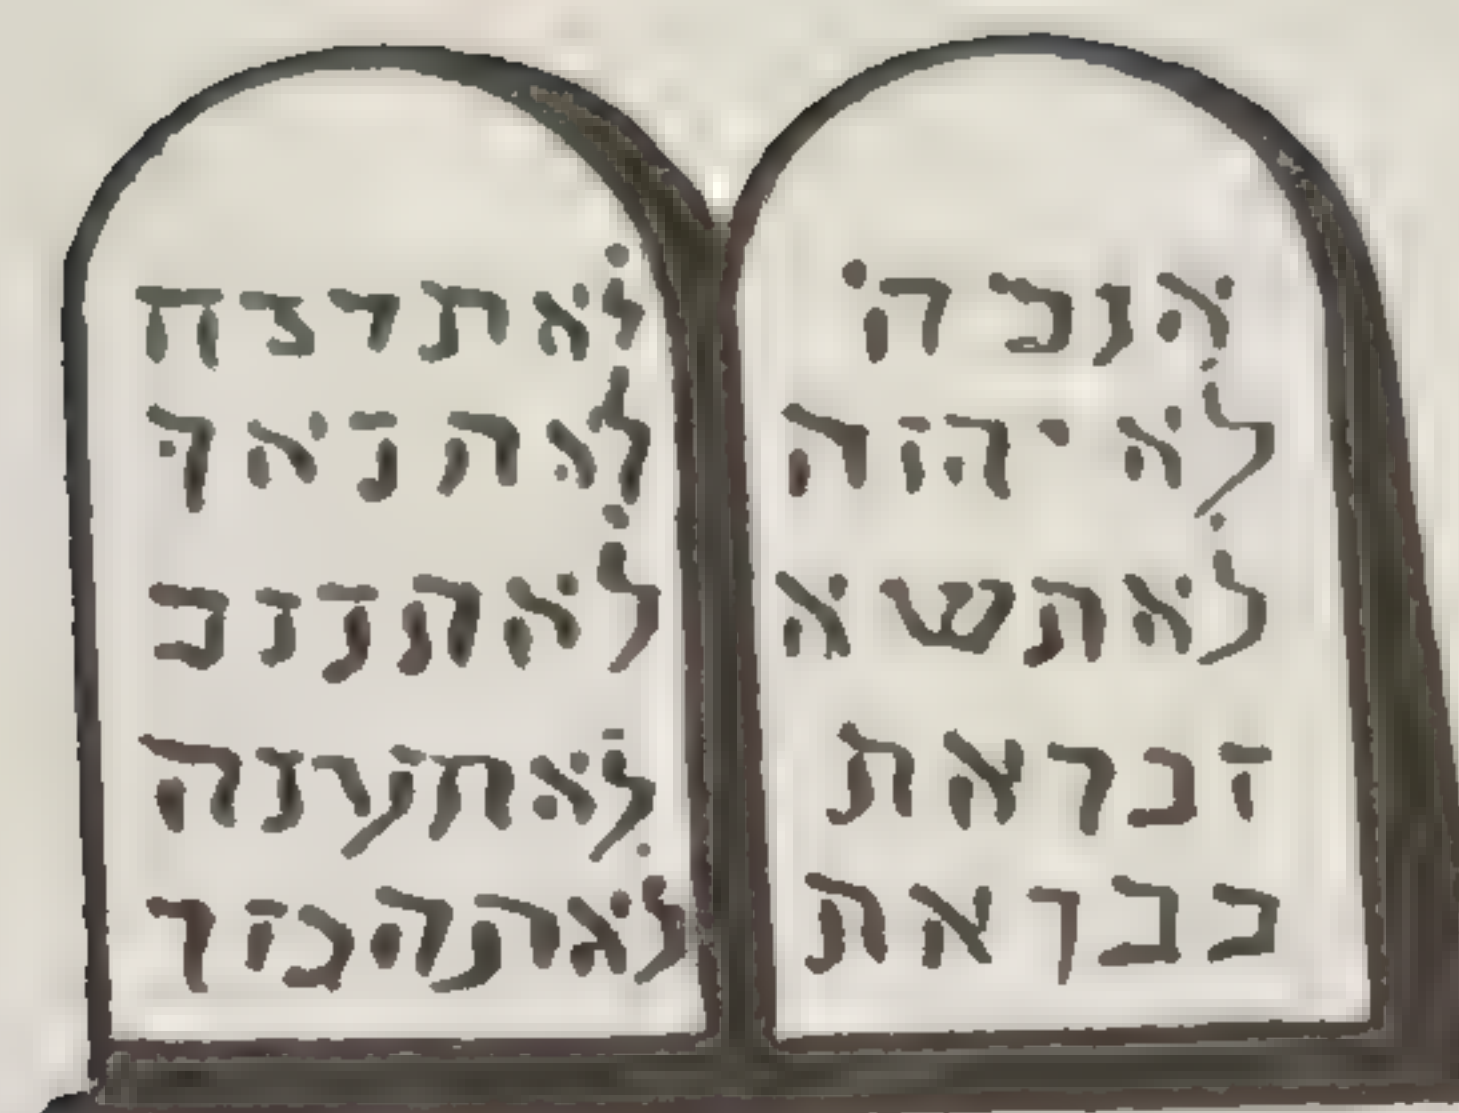 אנכה
לא יהוה
לאתשא
זכראת
כבדאת
לאתרצח
לאהנאף
לאתננב
לאתענה
לאתהמד